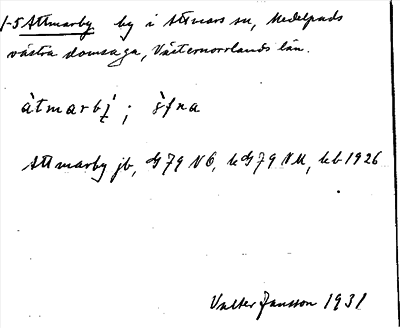 1-5 Attmarby by i Attmars sn, Medelpads
västra domsaga, Västernorrlands län.
àtmarbý ; s̀fna
Attmarby jb, G 79 NO, k G 79 NU, kb 1926
Valter Jansson 1931